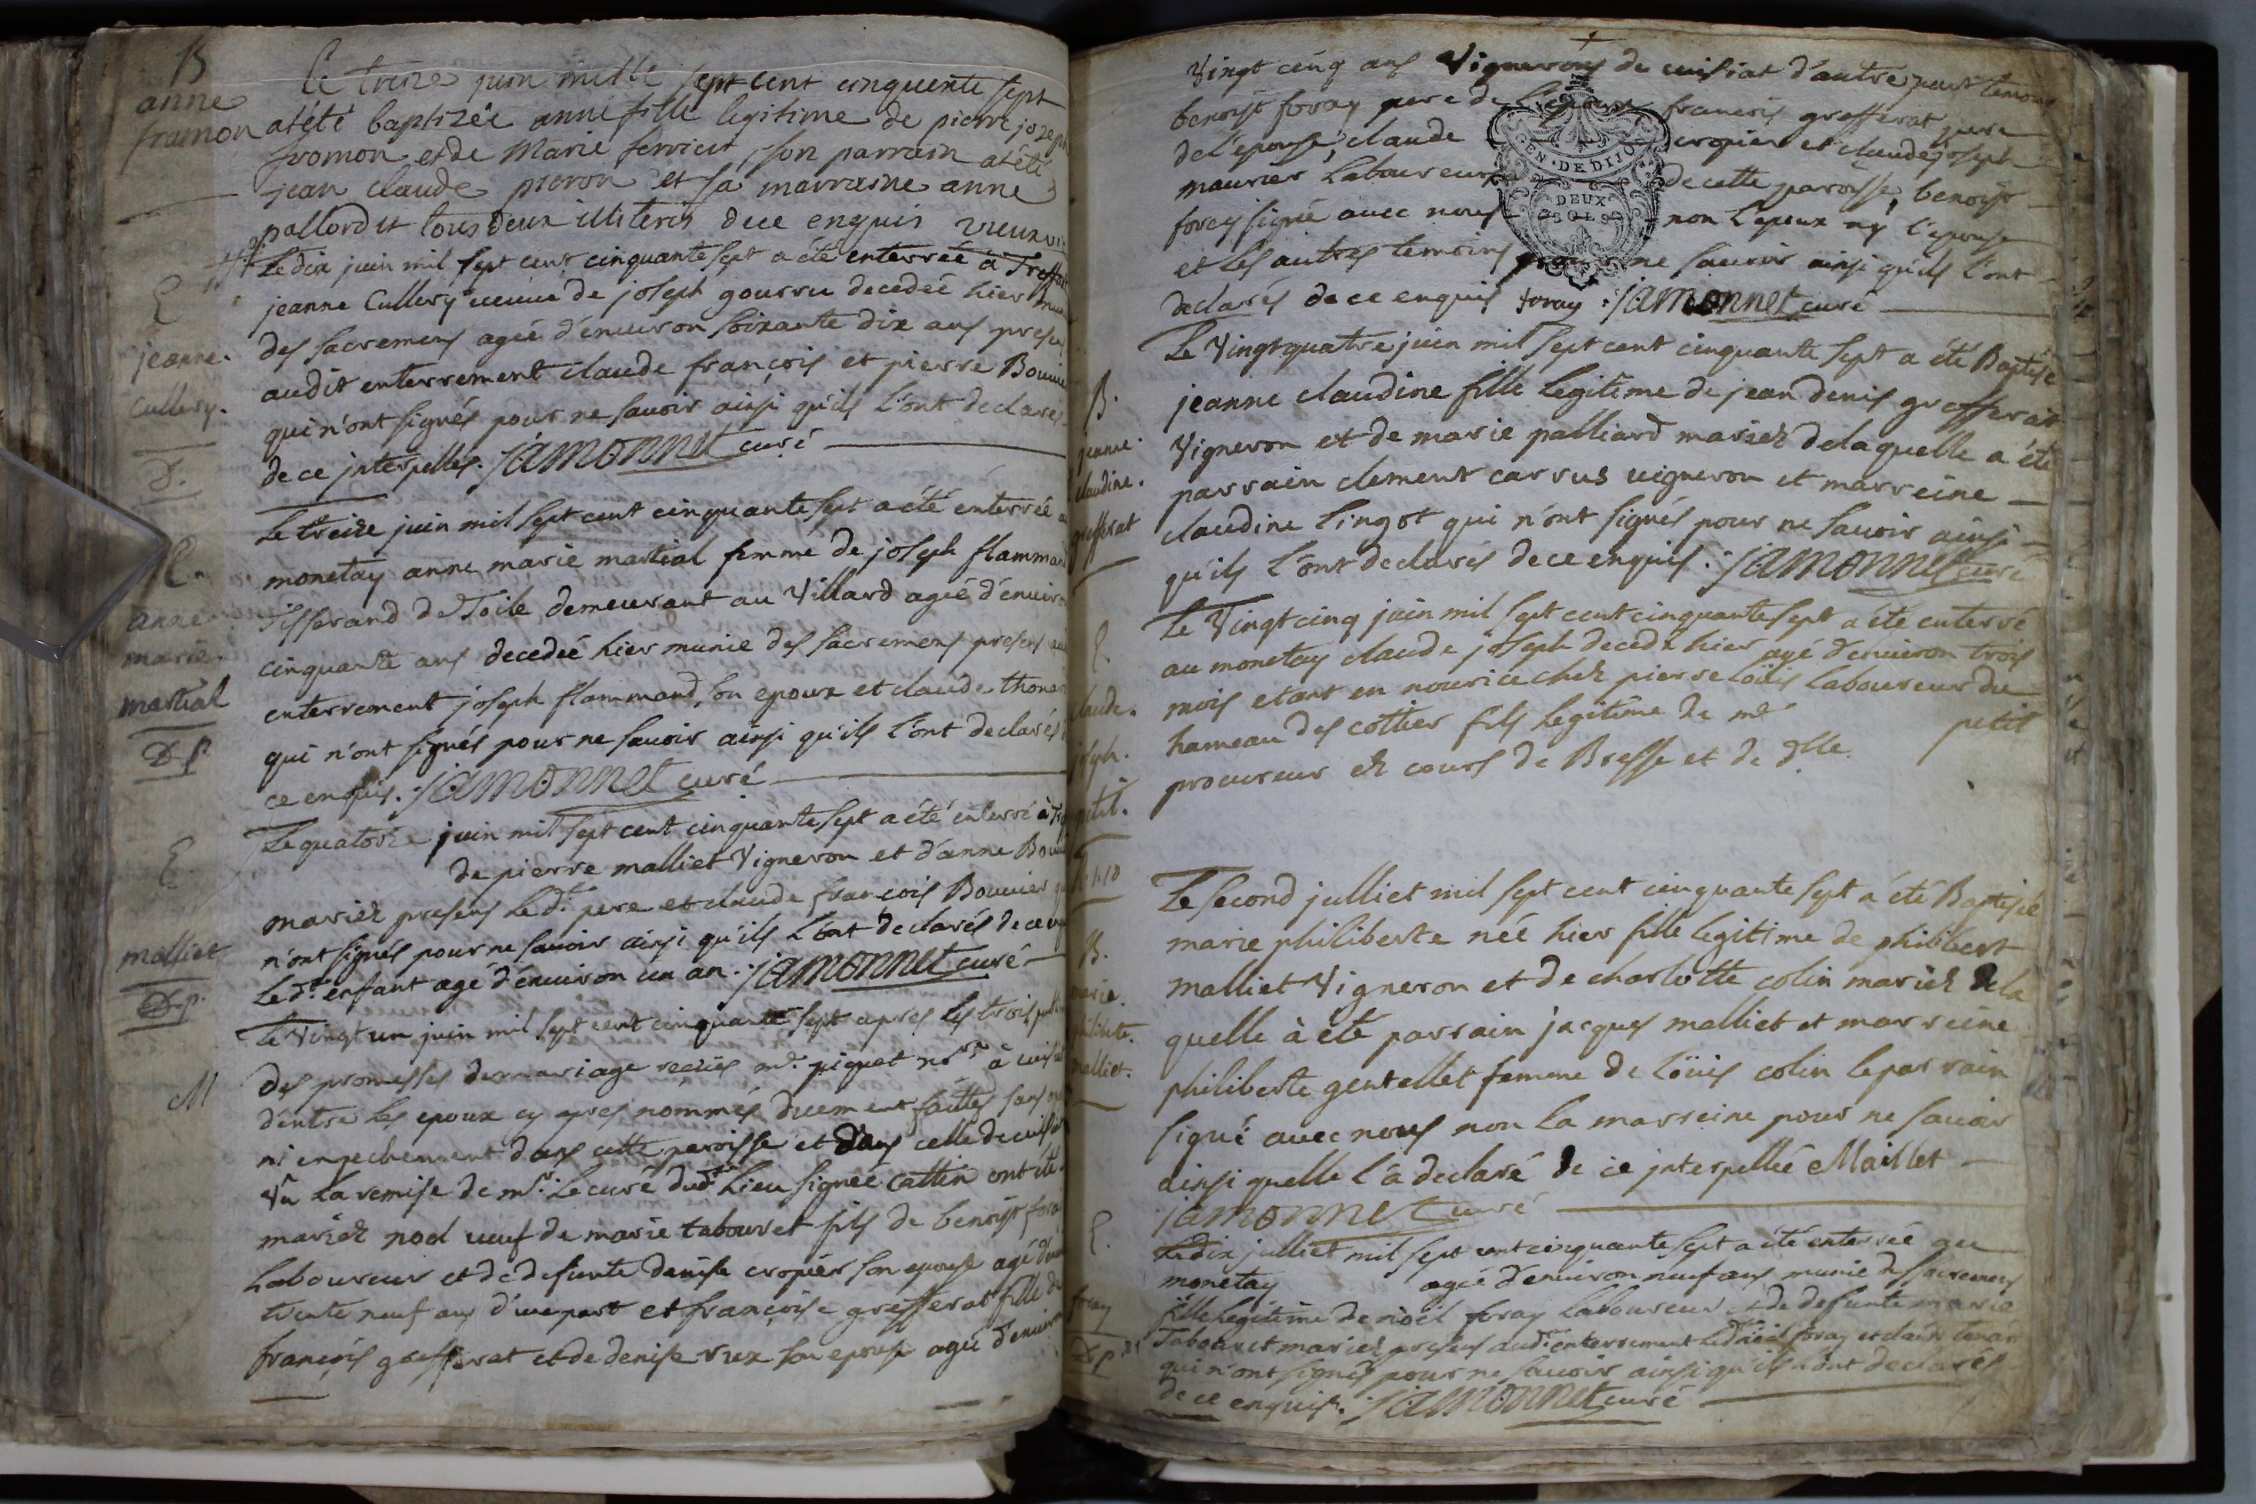 B
anne
framon
Le treize juin mille sept cent cinquente sept
at été baptizée anne fille legitime de pierre joseph
fromon et de Marie ferviet son parrain at été
jean claude pieron et sa marraine anne
pallordet tous deux illiteris de ce enquis vieux vic
E
jeanne.
Cullery.
D.
Le dix juin mil sept cent cinquante sept a été enterrée à Treffort
jeanne Cullery veuve de joseph gourru decedée hier munie
des sacremens agée d'environ soixante dix ans presens
audit enterrement claude françois et pierre Bouvier
qui n'ont signés pour ne savoir ainsi qu'ils l'ont declarés
de ce interpellés. jamonnet curé
E.
anne
marie.
martial
D.p.
Le treize juin mil sept cent cinquante sept a été enterrée au
monetay anne marie martial femme de joseph flammand
Tisserand de Toile demeurant au Villard agée d'environ
cinquante ans decedée hier munie des sacremens presens au
enterrement joseph flammand son epoux et claude thonar
qui n'ont signés pour ne savoir ainsi qu'ils l'ont declarés
ce enquis. jamonnet curé
E
malliet
D.p.
Le quatorze juin mil sept cent cinquante sept a été enterré à
de pierre malliet Vigneron et d'anne Bouvier
mariez presens Le dt. pere et claude françois Bouvier qui
n'ont signés pour ne savoir ainsi qu'ils l'ont declarés de ce
Le dt. enfant agé d'environ un an. jamonnet curé
M
Le Vingt un juin mil sept cent cinquante sept apres les trois
des promesses de mariage reçües me. piquet nore. à cuisiat
d'entre les epoux cy apres nommés duement faittes sans
ni enpechement dans cette paroisse et dans celle de cuisiat
Vû La remise de mr. Le curé dudt. Lieu signée Cattin ont été
mariez noel veuf de marie tabouret fils de benoist foray
Laboureur et de defunte denise cropier son epouse agé d'environ
trente neuf ans d'une part et françoise grefferat fille de
françois grefferat et de denise rux son epouse agée d'environ
Vingt cinq ans Vignerons de cuisiat d'autre part temoins
benoist foray pere de l'epoux francois grefferat pere
de l'epouse, claude cropier et claude joseph
maurier Laboureurs de cette paroisse, benoist
foray signé avec nous non l'epoux ny l'epouse
et les autres temoins pour ne savoir ainsi qu'ils l'ont
declarés de ce enquis foray. jamonnet curé
EN. DE DIJO
DEUX
SOLS
B.
jeanne.
claudine.
grefferat
Le Vingt quatre juin mil sept cent cinquante sept a été Baptisée
jeanne claudine fille Legitime de jean denis grefferat
Vigneron et de marie palliard mariez de laquelle a été
parrain clement carrus vigneron et marreine
claudine Lingot qui n'ont signés pour ne savoir ainsi
qu'ils l'ont declarés de ce enquis. jamonnet curé
E.
claude.
joseph.
petit.
Le Vingt cinq juin mil sept cent cinquante sept a été enterré
au monetay claude joseph decedé hier agé d'environ trois
mois etant en nourice chez pierre Loüis Laboureur du
hameau des cottier fils legitime de me. petit
procureur ez cours de Bresse et de dlle.
B.
marie.
philiberte.
malliet.
Le second julliet mil sept cent cinquante sept a été Baptisée
marie philiberte née hier fille legitime de philibert
malliet Vigneron et de charlotte colin mariez de la
quelle à été parrain jacques malliet et marreine
philiberte gentellet femme de Loüis colin le parrain
signé avec nous non la marreine pour ne savoir
ainsi quelle l'a declaré de ce interpellée Maillet
jamonnet curé
E.
foray
D.p.
Le dix julliet mil sept cent cinquante sept a été enterrée au
monetay agée d'environ neuf ans munie des sacremens
fille legitime de noël foray Laboureur et de defunte marie
Tabouret mariez presens audt. enterrement Ledt. noël foray et claude
qui n'ont signés pour ne savoir ainsi qu'ils l'ont declarés
de ce enquis. jamonnet curé